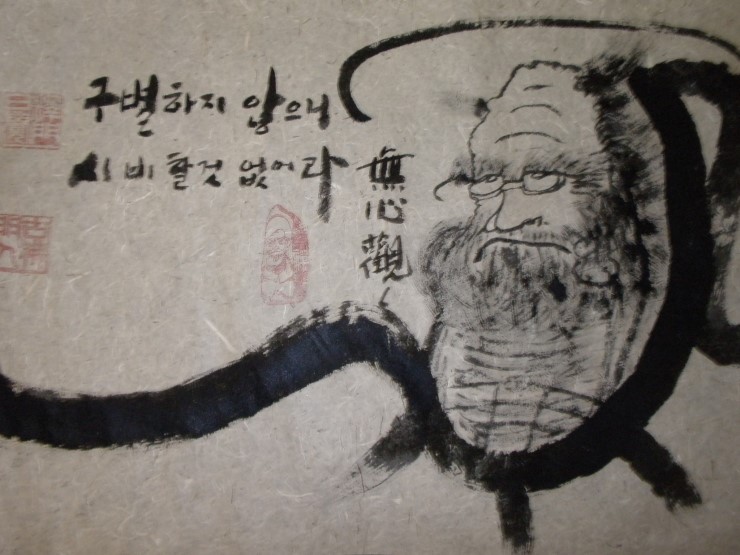 구별하지 않으니
시비할것 없어라
無心觀